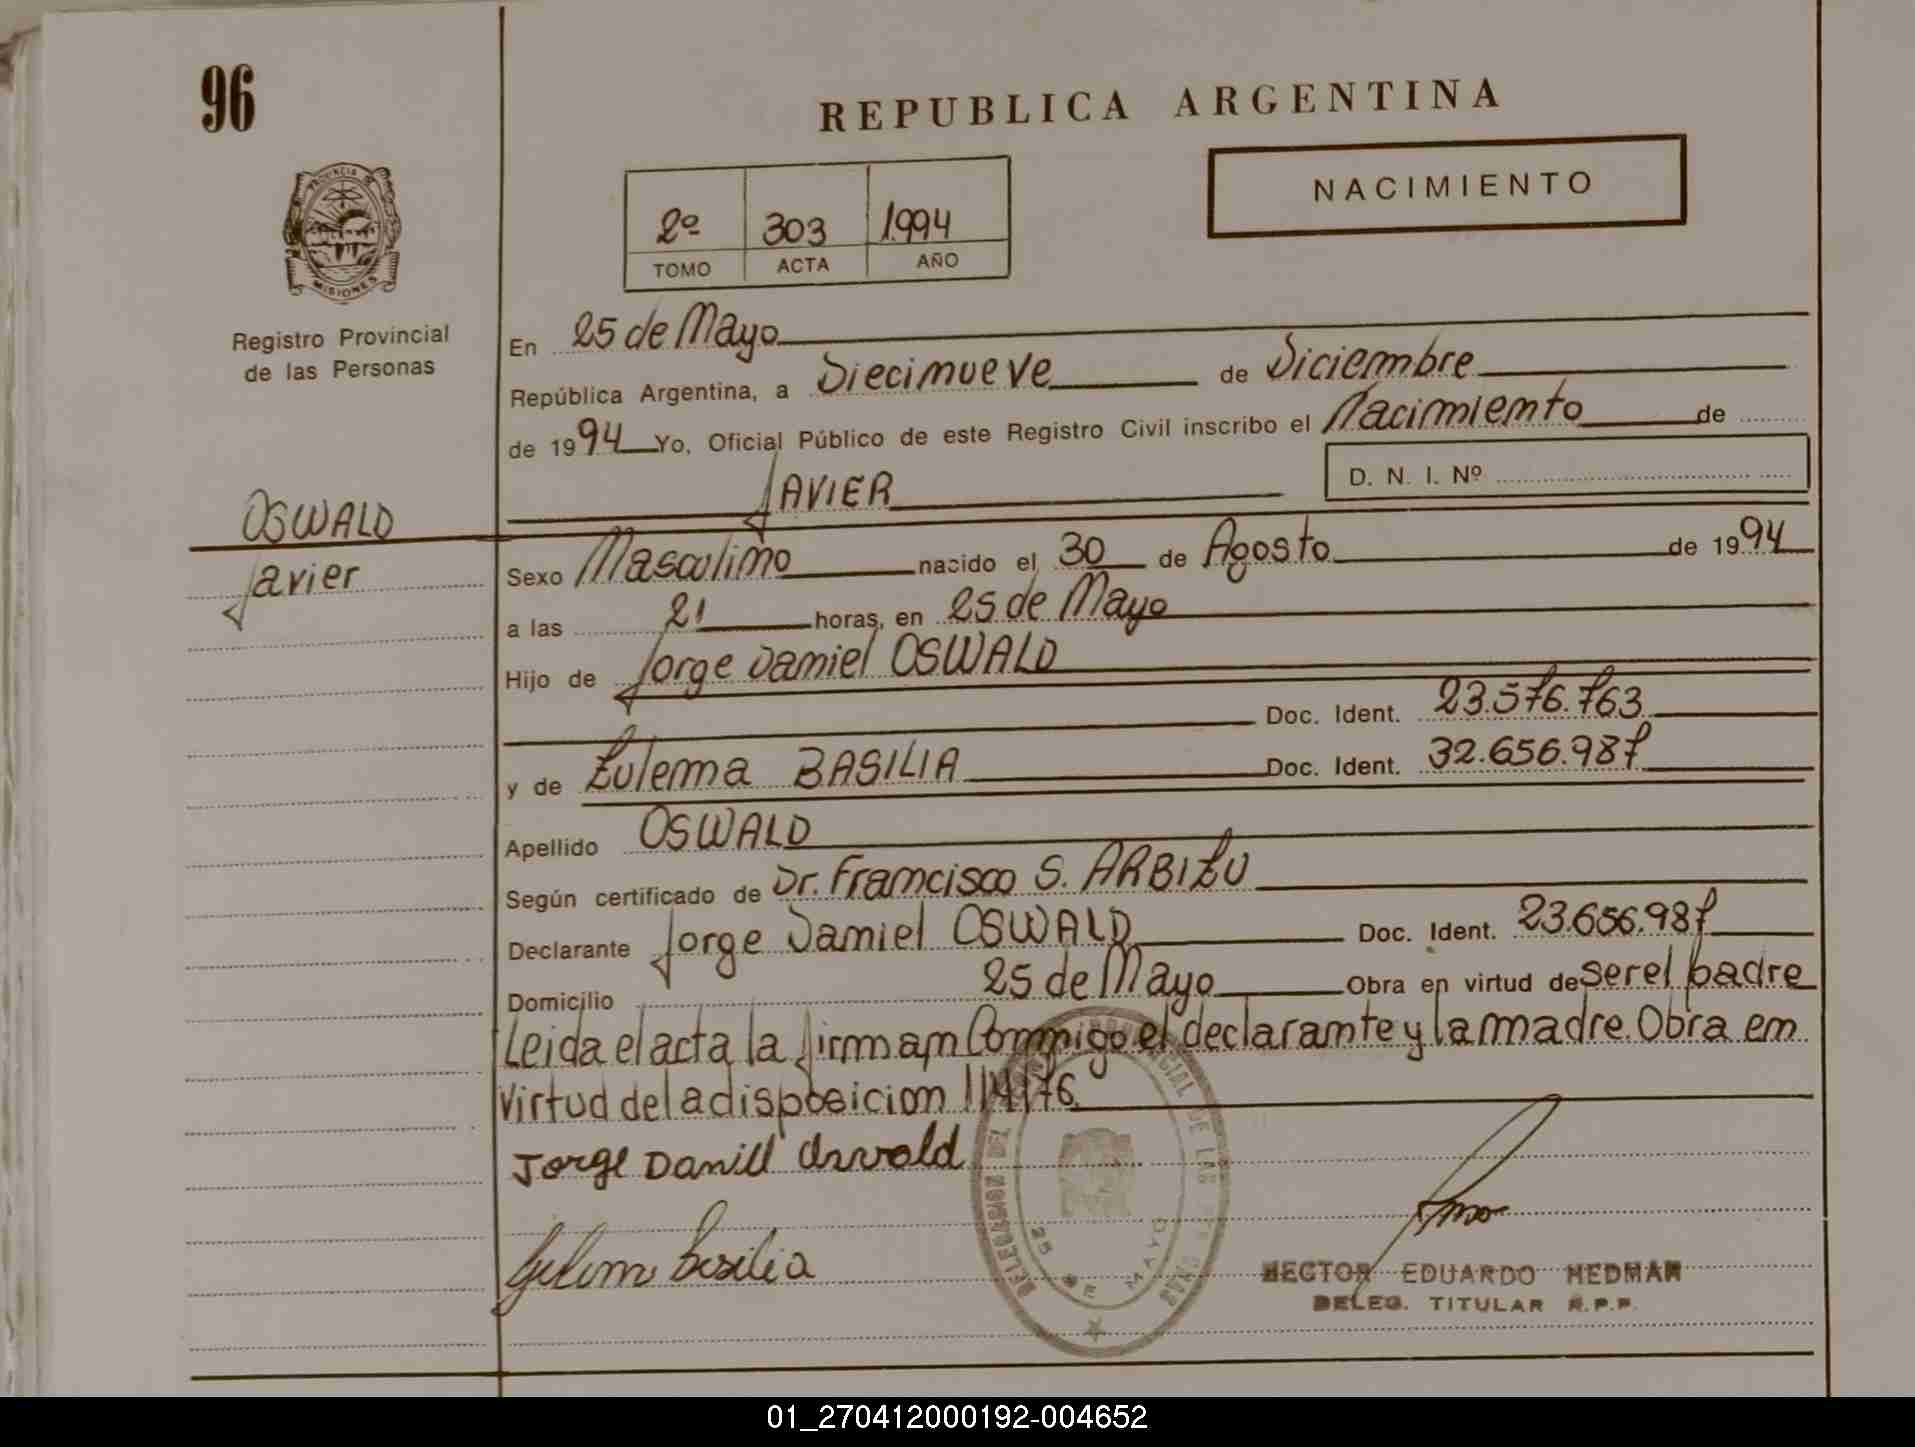 96
REPUBLICA ARGENTINA
NACIMIENTO
2º 303 1994
TOMO ACTA AÑO
PROVINCIA DE
MISIONES
Registro Provincial
de las Personas
En 25 de Mayo
República Argentina, a Diecinueve de Diciembre
de 1994 Yo, Oficial Público de este Registro Civil inscribo el Nacimiento de
JAVIER D. N. I. Nº
OSWALD
Javier
Sexo Masculino nacido el 30 de Agosto de 1994
a las 21 horas, en 25 de Mayo
Hijo de Jorge Daniel OSWALD
Doc. Ident. 23.576.763
y de Zulema BASILIA Doc. Ident. 32.656.987
Apellido OSWALD
Según certificado de Dr. Francisco S. ARBIZU
Declarante Jorge Daniel OSWALD Doc. Ident. 23.656.987
Domicilio 25 de Mayo Obra en virtud de ser el padre
Leida el acta la firman Conmigo el declarante y la madre. Obra en
Virtud de la disposicion 11/4/76.
Jorge Daniel Oswald
Basilia
25 DE MAYO
HECTOR EDUARDO HEDMAN
DELEG. TITULAR R.P.P.
01_270412000192-004652